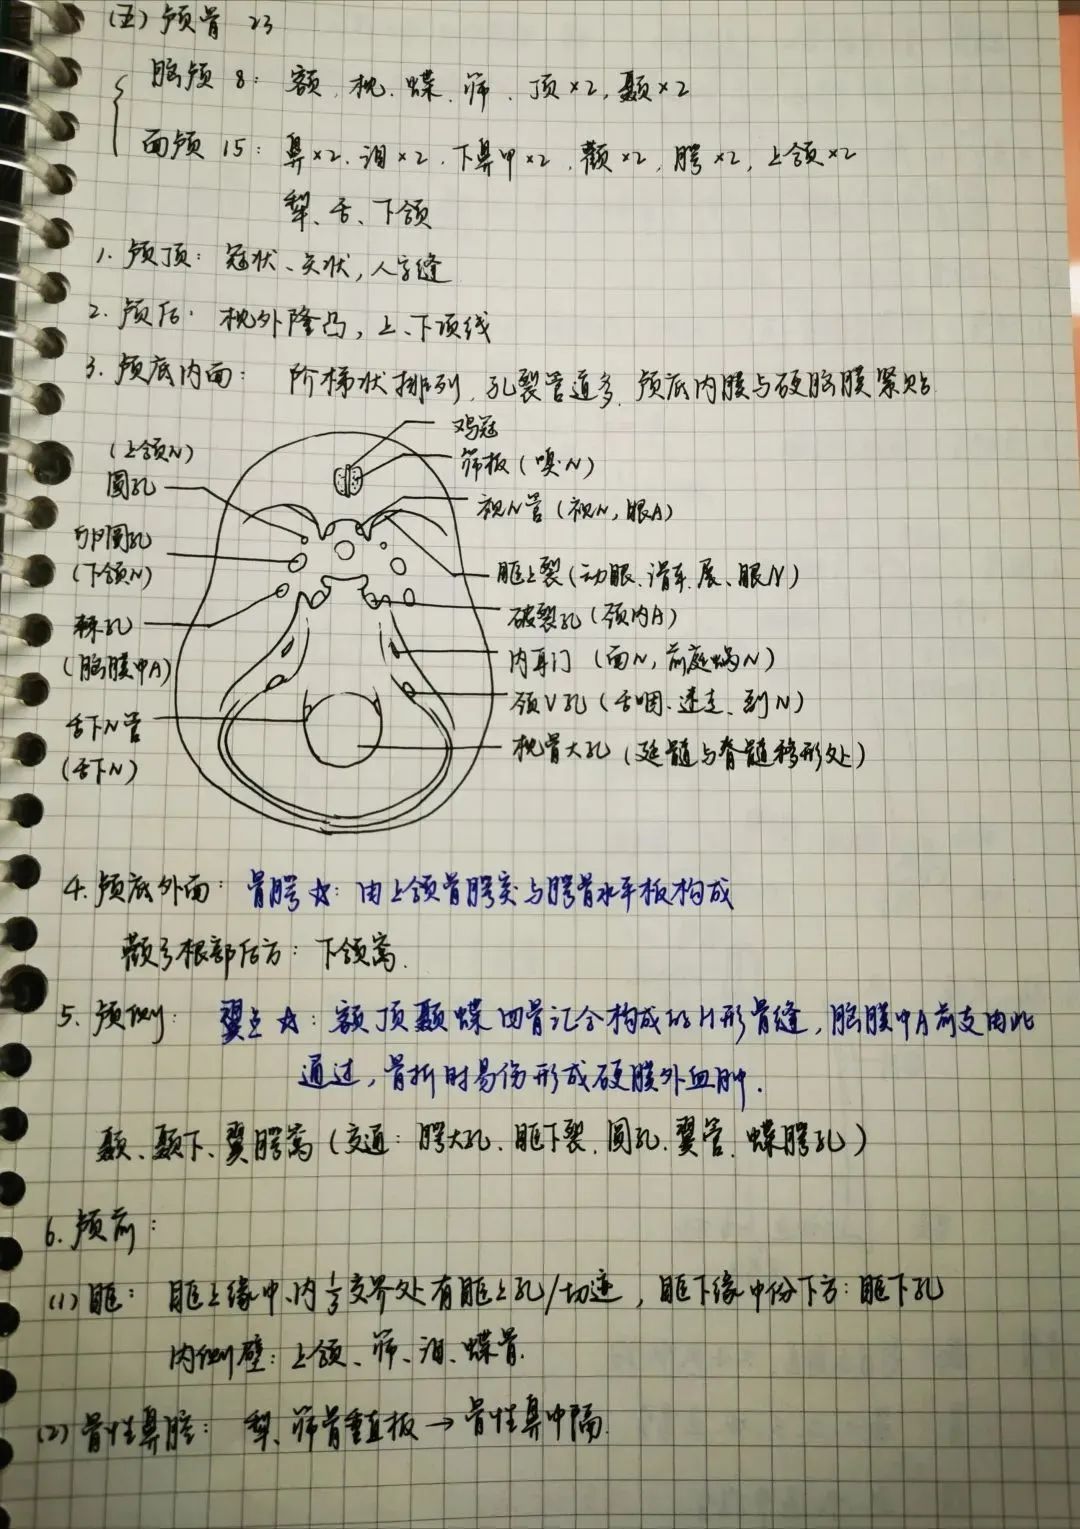 (五) 颅骨 23
脑颅 8: 额、枕、蝶、筛、顶×2, 颞×2
面颅 15: 鼻×2、泪×2、下鼻甲×2、颧×2, 腭×2, 上颌×2
犁、舌、下颌
1. 颅顶: 冠状、矢状, 人字缝
2. 颅后: 枕外隆凸, 上、下项线
3. 颅底内面: 阶梯状排列, 孔裂管道多, 颅底内膜与硬脑膜紧贴
鸡冠
(上颌N)
圆孔
筛板 (嗅N)
视N管 (视N, 眼A)
卵圆孔
(下颌N)
眶上裂 (动眼、滑车、展、眼N)
破裂孔 (颈内A)
棘孔
(脑膜中A)
内耳门 (面N, 前庭蜗N)
颈V孔 (舌咽、迷走、副N)
舌下N管
(舌下N)
枕骨大孔 (延髓与脊髓移形处)
4. 颅底外面: 骨腭☆: 由上颌骨腭突与腭骨水平板构成
颧弓根部后方: 下颌窝.
5. 颅侧: 翼点☆: 额顶颞蝶四骨汇合构成的H形骨缝, 脑膜中A前支由此
通过, 骨折时易伤形成硬膜外血肿.
颞、颞下、翼腭窝 (交通: 腭大孔、眶下裂、圆孔、翼管、蝶腭孔)
6. 颅前:
(1) 眶: 眶上缘中、内1/3交界处有眶上孔/切迹, 眶下缘中份下方: 眶下孔
内侧壁: 上颌、筛、泪、蝶骨.
(2) 骨性鼻腔: 犁、筛骨垂直板→骨性鼻中隔.